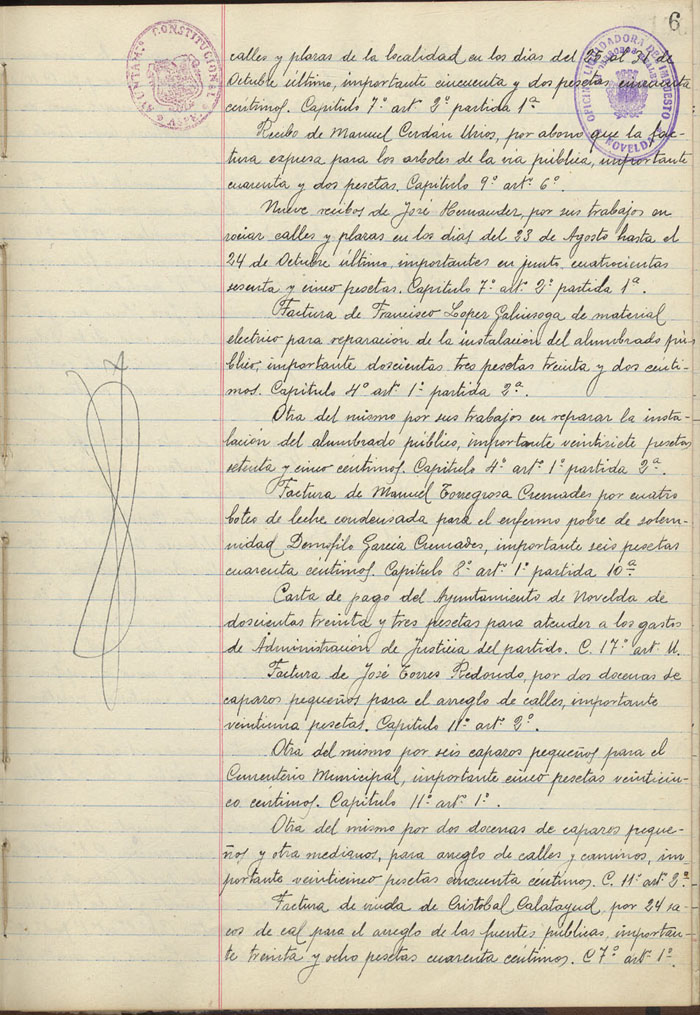 6
AYUNTAMTO CONSTITUCIONAL
ASPE
OFICINA LIQUIDADORA DEL IMPUESTO
NOVELDA
calles y plazas de la localidad en los dias del 25 al 31 de
Octubre último, importante cincuenta y dos pesetas cincuenta
centimos. Capitulo 7º artº 2º partida 1ª
Recibo de Manuel Cerdán Urios, por abono que la fac-
tura expresa para los arboles de la via pública, importante
cuarenta y dos pesetas. Capitulo 9º artº 6º.
Nueve recibos de José Hernandez, por sus trabajos en
rociar calles y plazas en los dias del 23 de Agosto hasta el
24 de Octubre último, importantes en junto, cuatrocientas
sesenta y cinco pesetas. Capitulo 7º artº 2º partida 1ª.
Factura de Francisco Lopez Galiusoga de material
electrico para reparación de la instalación del alumbrado pú-
blico, importante doscientas tres pesetas treinta y dos cénti-
mos. Capitulo 4º artº 1º partida 2ª.
Otra del mismo por sus trabajos en reparar la insta-
lación del alumbrado público, importante veintisiete pesetas
setenta y cinco céntimos. Capitulo 4º artº 1º partida 2ª.
Factura de Manuel Torregrosa Cremades por cuatro
botes de leche condensada para el enfermo pobre de solem-
nidad Demofilo García Cremades, importante seis pesetas
cuarenta céntimos. Capitulo 8º artº 1º partida 10ª
Carta de pago del Ayuntamiento de Novelda de
doscientas treinta y tres pesetas para atender a los gastos
de Administración de Justicia del partido. C. 17º art. U.
Factura de José Torres Redondo, por dos docenas de
capazos pequeños para el arreglo de calles, importante
veintiuna pesetas. Capitulo 11º artº 2º.
Otra del mismo por seis capazos pequeños para el
Cementerio Municipal, importante cinco pesetas veinticin-
co céntimos. Capitulo 11º artº 1º.
Otra del mismo por dos docenas de capazos peque-
ños y otra medianos, para arreglo de calles y caminos, im-
portante veinticinco pesetas cincuenta céntimos. C. 11º artº 2º
Factura de viuda de Cristobal Calatayud, por 24 sa-
cos de cal para el arreglo de las fuentes públicas, importan-
te treinta y ocho pesetas cuarenta céntimos. C 7º artº 1º.